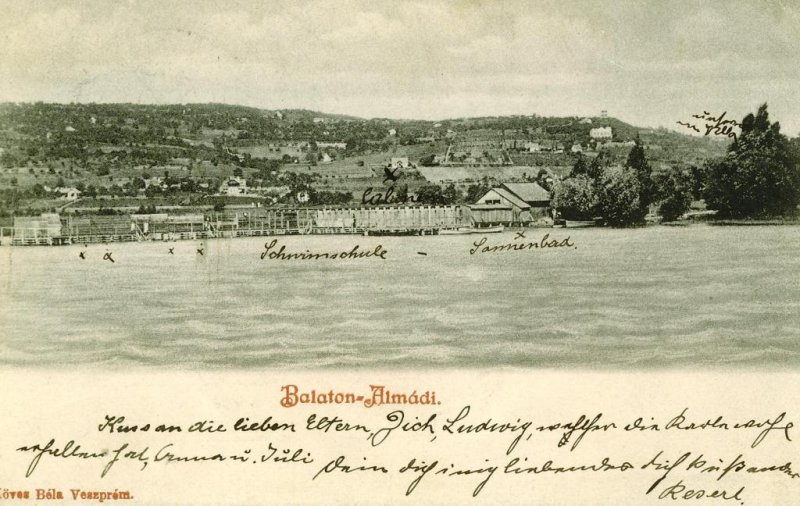 unsere
Villa
Cabinen
Schwimschule - Sonnenbad.
Balaton-Almádi.
Kuss an die lieben Eltern, Dich, Ludwig, welcher die Karte wohl
erhalten hat, Anna u. Juli Dein dich innig liebendes dich küssendes
Reserl.
Köves Béla Veszprém.